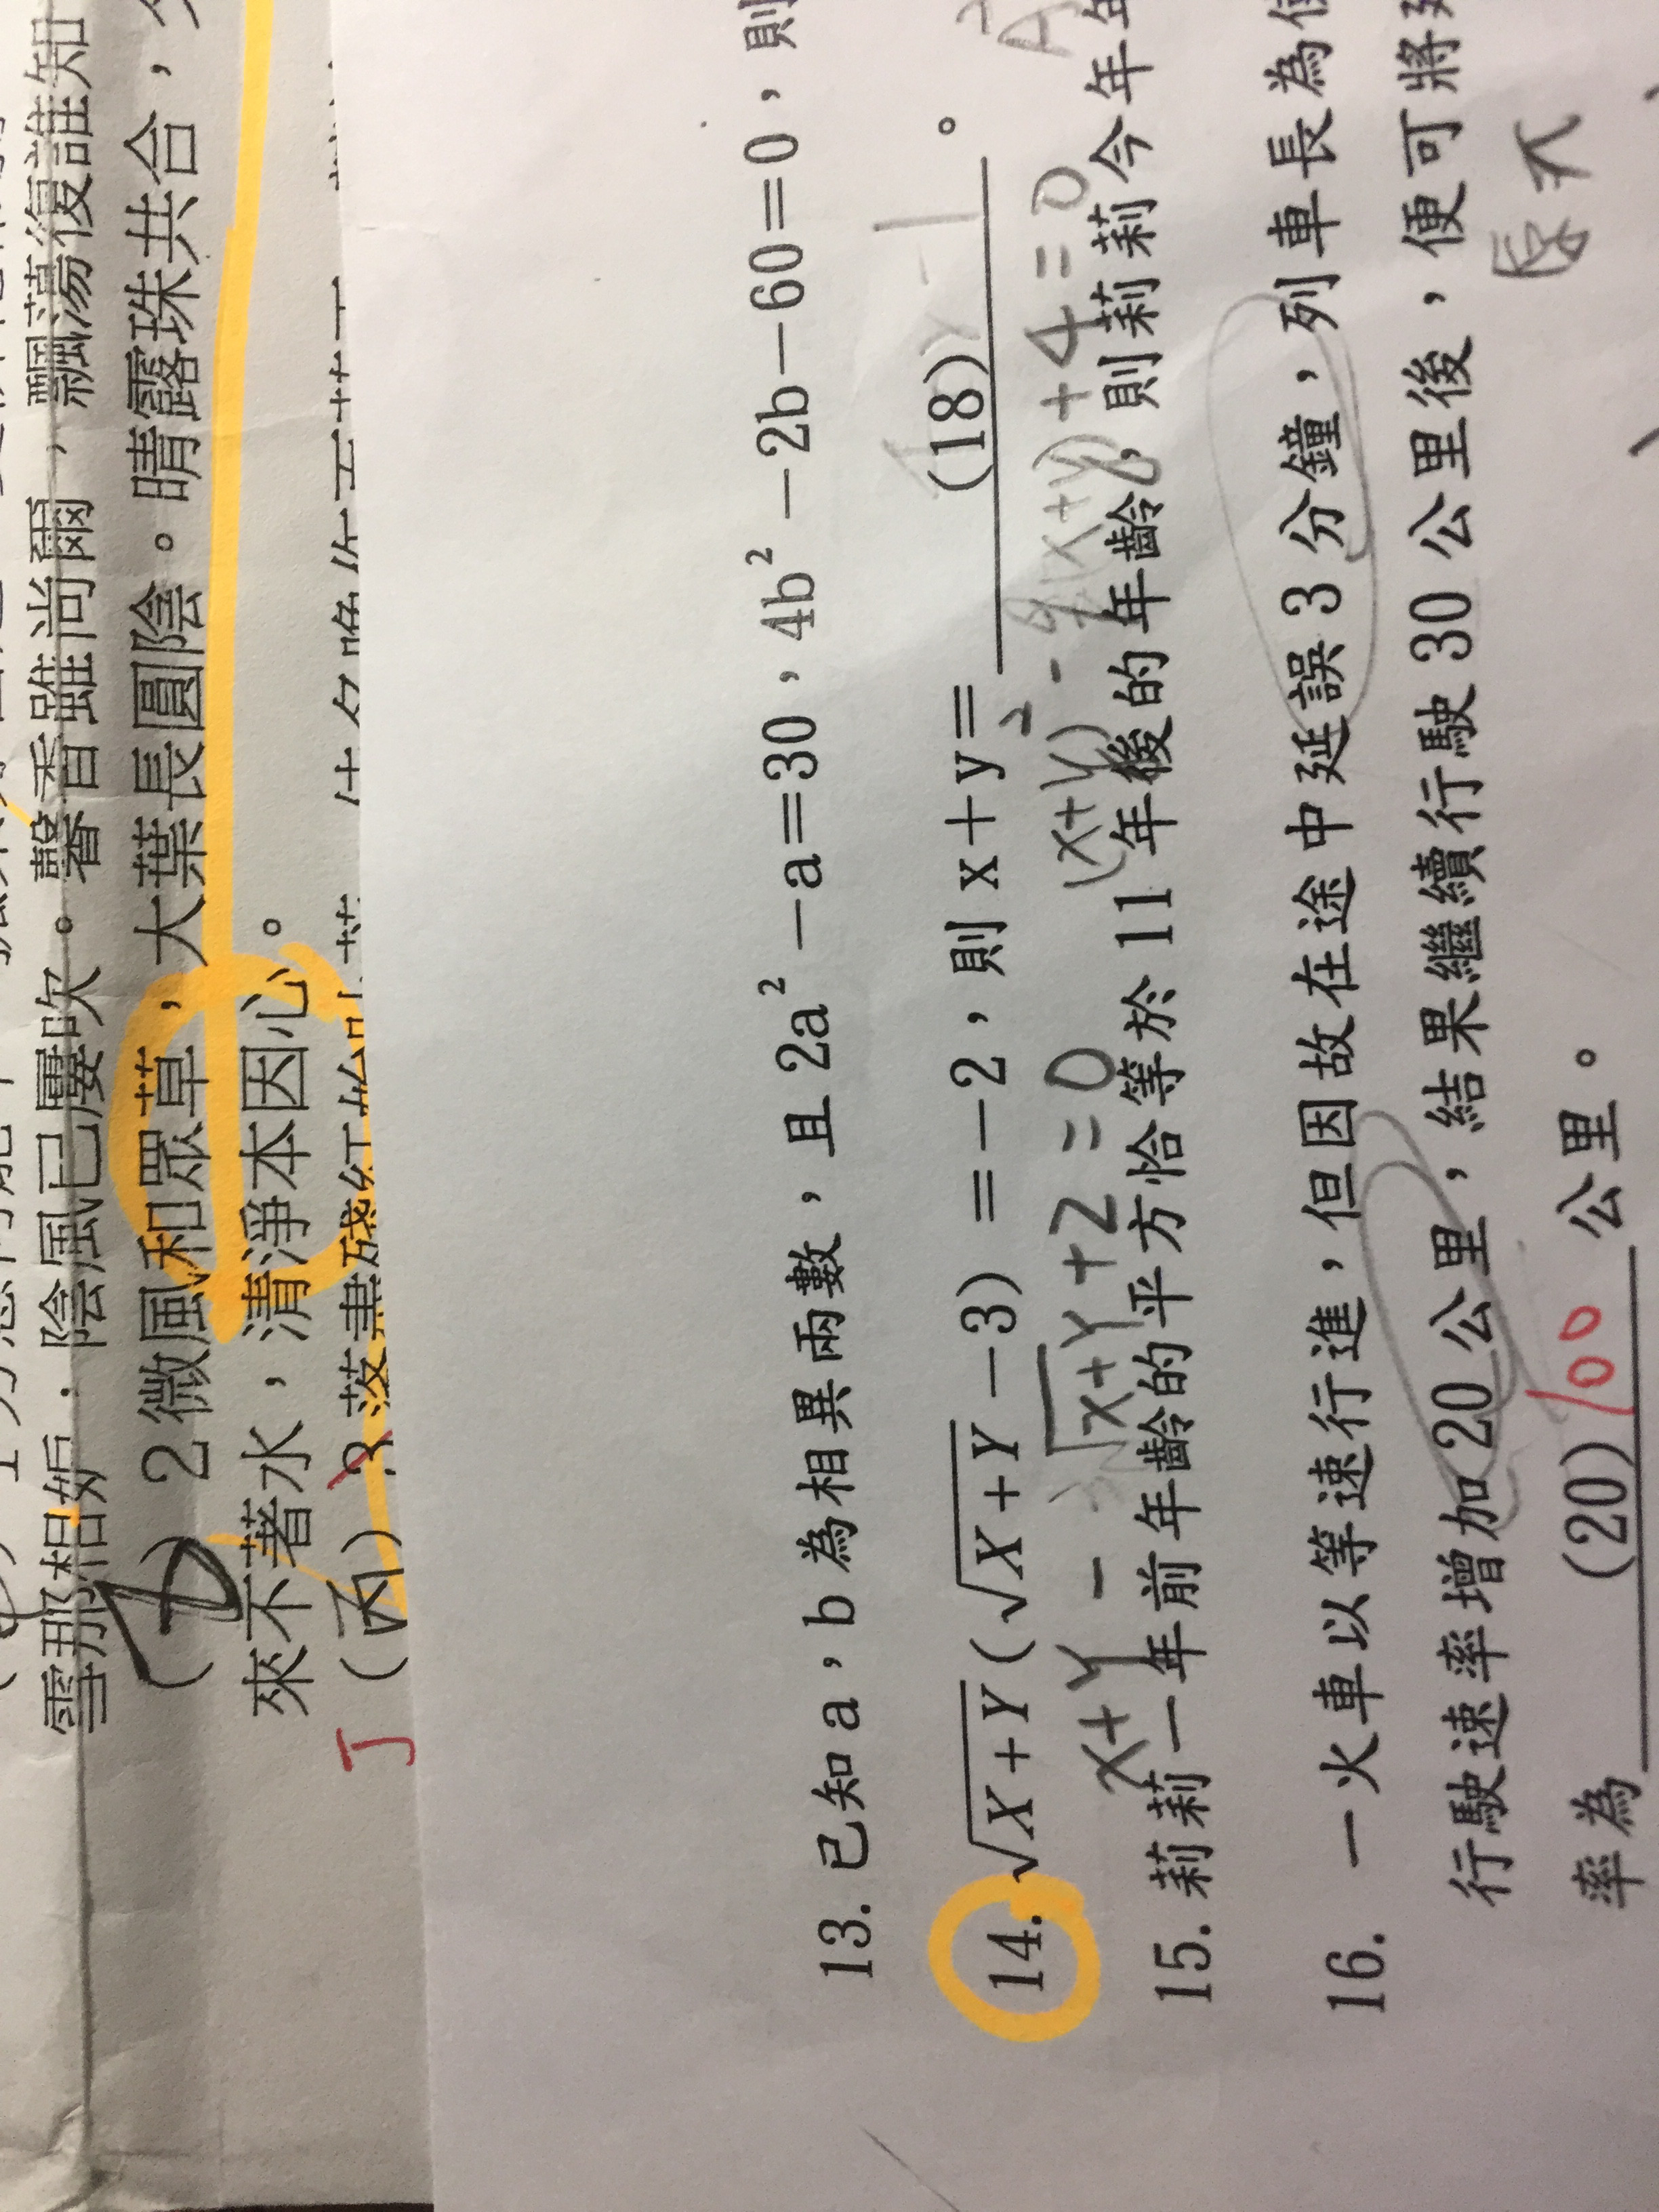 雪那相妬．陰風已屢吹。馨香雖尚爾，飄蕩復誰知
2微風和眾草，大葉長圓陰。晴露珠共合，
來不著水，清淨本因心。
丁(丙)3落盡殘紅始
13.已知a，b為相異兩數，且2a²－a＝30，4b²－2b－60＝0，則
14.√X+Y(√X+Y－3)＝－2，則x＋y＝ (18) 。
x+Y - 3√x+Y +2=0
(x+Y)² - 9(x+y) +4=0
15.莉莉一年前年齡的平方恰等於11年後的年齡，則莉莉今年年
16.一火車以等速行進，但因故在途中延誤3分鐘，列車長為
行駛速率增加20公里，結果繼續行駛30公里後，便可將
率為 (20) 100 公里。